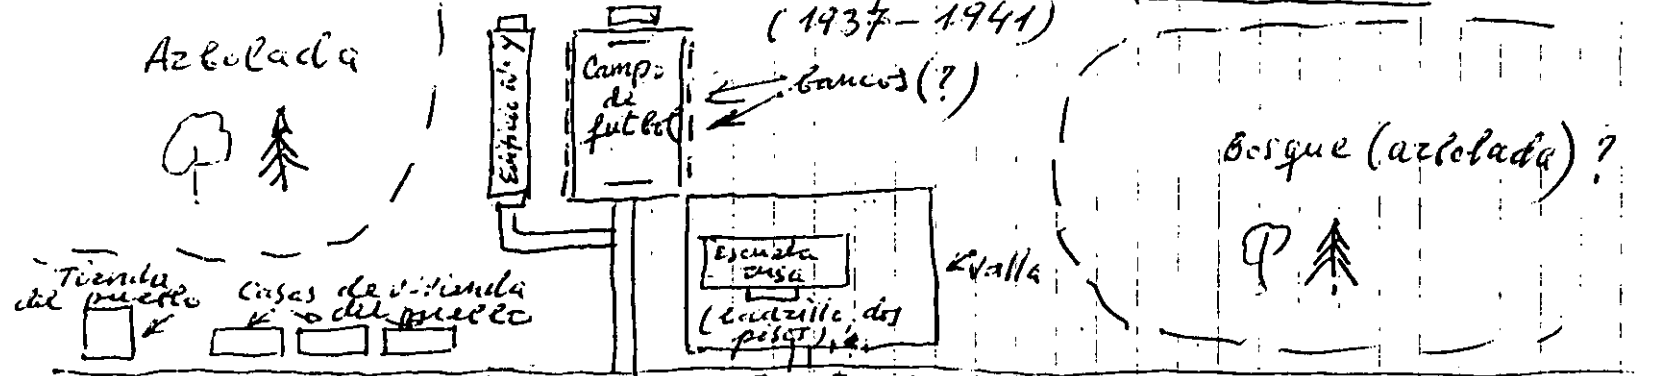 (1937-1941)
Arbolada
Campo
de
futbol
bancos (?)
Bosque (arbolada) ?
Escuela
rusa
(ladrillo, dos
pisos)
valla
Tienda
del pueblo
Casas de vivienda
del pueblo